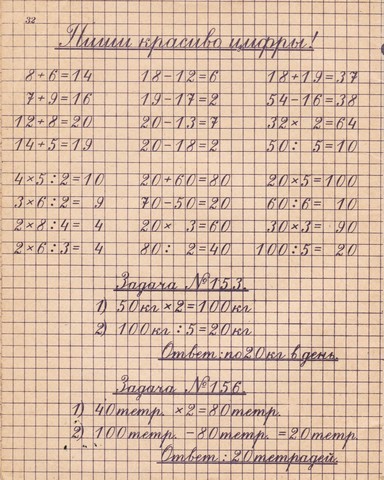 32
Пиши красиво цифры!
8+6=14 18-12=6 18+19=37
7+9=16 19-17=2 54-16=38
12+8=20 20-13=7 32× 2=64
14+5=19 20-18=2 50: 5=10
4×5:2=10 20+60=80 20×5=100
3×6:2= 9 70-50=20 60:6= 10
2×8:4= 4 20× 3=60 30×3= 90
2×6:3= 4 80: 2=40 100:5= 20
Задача №153.
1) 50кг×2=100кг
2) 100кг:5=20кг
Ответ: по 20кг в день.
Задача №156.
1) 40тетр. ×2=80тетр.
2) 100тетр. -80тетр. =20тетр.
Ответ: 20тетрадей.